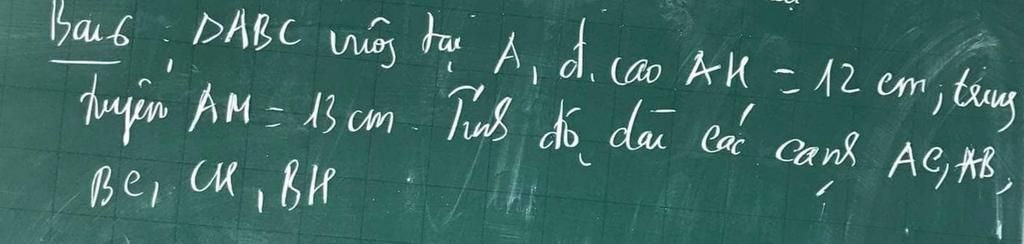 Bài 6: ΔABC vuông tại A, đ. cao AH = 12 cm; trung
tuyến AM = 13 cm. Tính độ dài các cạnh AC, AB,
BC, CH, BH